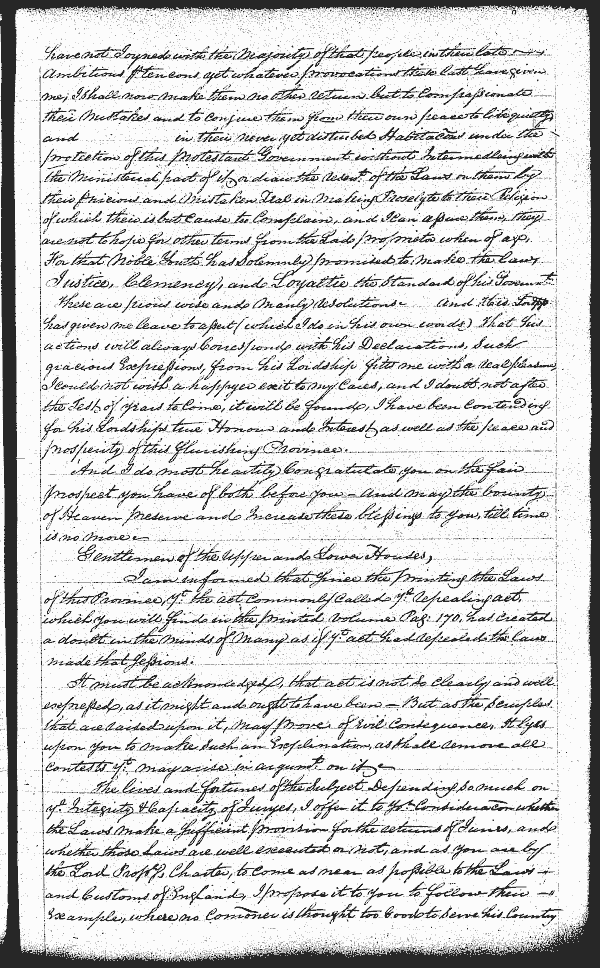 have not Joyned with the Majority of that people in their late
Ambitious ptencons, yet whatever provocations these last have given
me, I shall now make them no other return but to Compassionate
their Mistakes and to conjure them from their own peace to live quietly
and in their never yet disturbed Habitacons under the
protection of this Protestant Government without Intermedling with
the Ministerial part of it, or draw the Resentt. of the Laws on them by
their pnicious and Mistaken Zeal in making Proselyte to their Religion
of which there is but Cause to Complain, and I can assure them, they
are not to hope for other terms from the Lord proprietr when of age,
For that Noble Youth has Solemnly promised to make the Law,
Justice, Clemency, and Loyaltie the Standard of his Governmt.
These are pious wise and Manly resolutions. And his Lordpp
has given me leave to assert (which I do in his own words) That his
actions will always Correspond with his Declarations, Such
gracious Expressions, from his Lordship fills me with a real pleasure,
I could not wish a happyer exit to my Cares, and I doubt not after
the Test of years to Come, it will be found, I have been contending
for his Lordships true Honour and Interest as well as the peace and
prosperity of this flurishing Province.
And I do most heartily Congratulate you on the fair
prospect you have of both before you - and may the bounty
of Heaven preserve and Increase these blessings to you, till time
is no more.
Gentlemen of the Upper and Lower Houses,
I am informed that Since the printing the Laws
of this Province, yt. the act Commonly Called ye. repealing act,
which you will find in the printed Volume Pag: 170. has created
a doubt in the minds of Many as if ye. act had repealed the laws
made that Sessions.
It must be acknowledged, that act is not so Clearly and well
expressed, as it might and ought to have been - But as the Scruples
that are raised upon it, may prove of Evil Consequence, It lyes
upon you to make Such an Explination, as shall remove all
contests yt. may arise in argumt. on it
The lives and fortunes of the Subject Depending so much on
ye. Integrity & Capacity of Juryes, I offer it to yor. Consideracon whether
the Laws make a Sufficient provision for the returns of Juries, and
whether those Laws are well executed or not, and as you are by
the Lord Proprys. Charter, to come as near as possible to the Laws
and Customs of England, I propose it to You to follow their
Example, where no Comoner is thought too Good to Serve his County